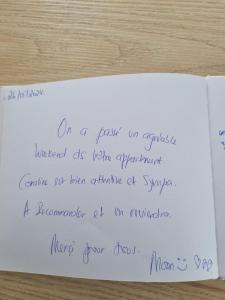 On a passé un agréable
weekend ds votre appartement
Caroline est bien attentive et Sympa.
A Recommander et on reviendra.
Merci pour tous.